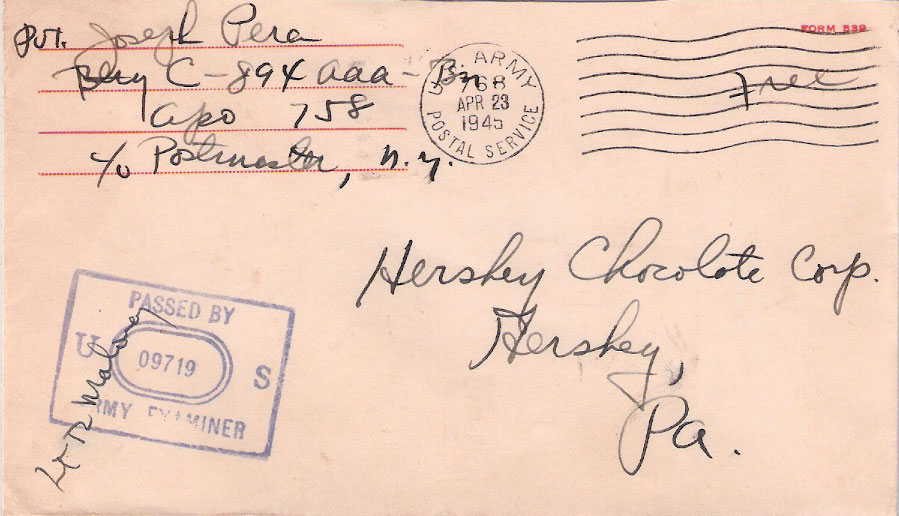 Pvt. Joseph Pera
Btry C - 894 aaa - Bn -
apo 758
c/o Postmaster, n.y.
U.S. ARMY
768
APR 23
1945
POSTAL SERVICE
FORM 539
Free
Hershey Chocolate Corp.
Hershey,
Pa.
PASSED BY
U 09719 S
ARMY EXAMINER